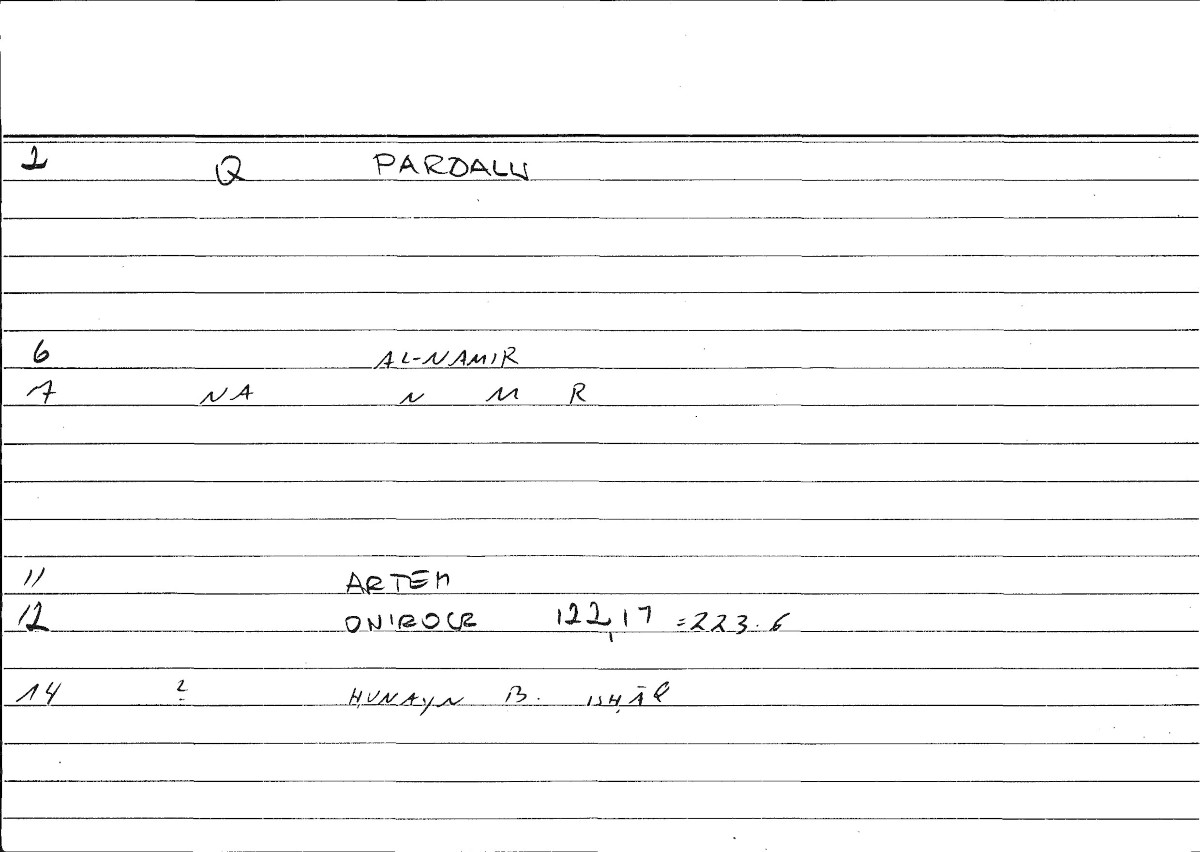 1 Q PARDALIS
6 AL-NAMIR
7 NA N M R
11 ARTEM
12 ONIROCR 122,17 =223.6
14 2 ḤUNAYN B. ISḤĀQ